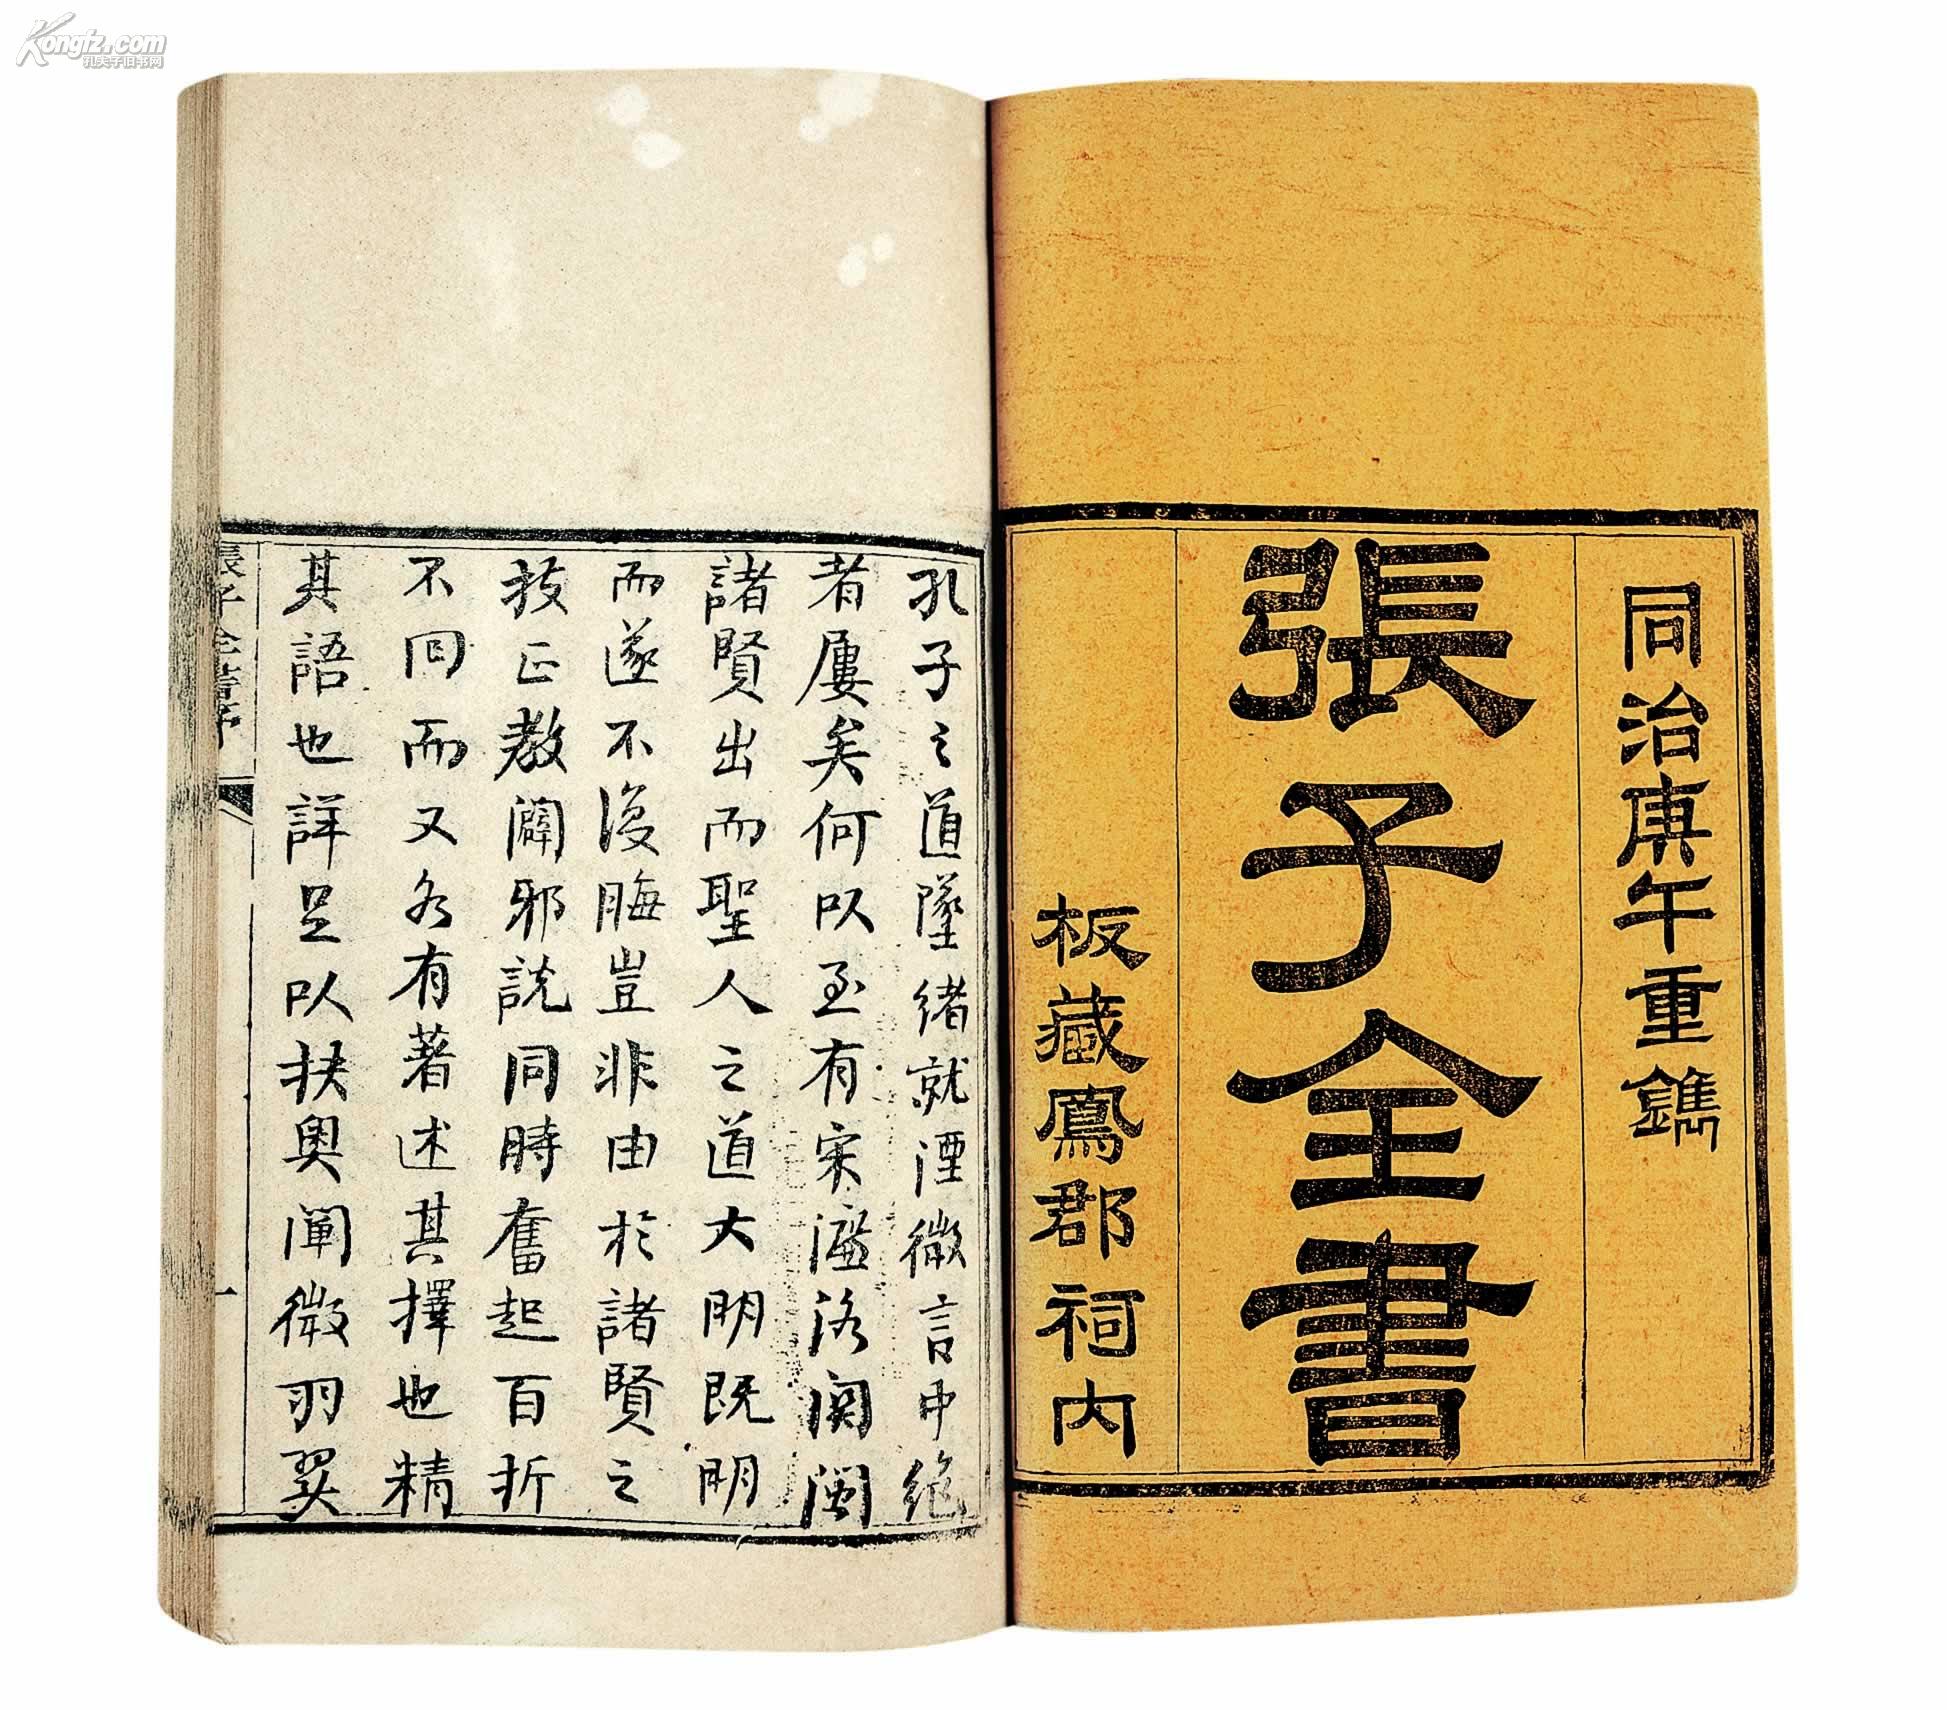 Kongfz.com
孔夫子旧书网
同治庚午重鐫
張子全書
板藏鳳郡祠内
孔子之道墜緒就湮微言中絶
者屢矣何以至有宋濂洛関閩
諸賢出而聖人之道大明既明
而遂不復晦豈非由於諸賢之
扶正教闢邪説同時奮起百折
不回而又各有著述其擇也精
其語也詳足以扶奥闡微羽翼
張子全書序
一